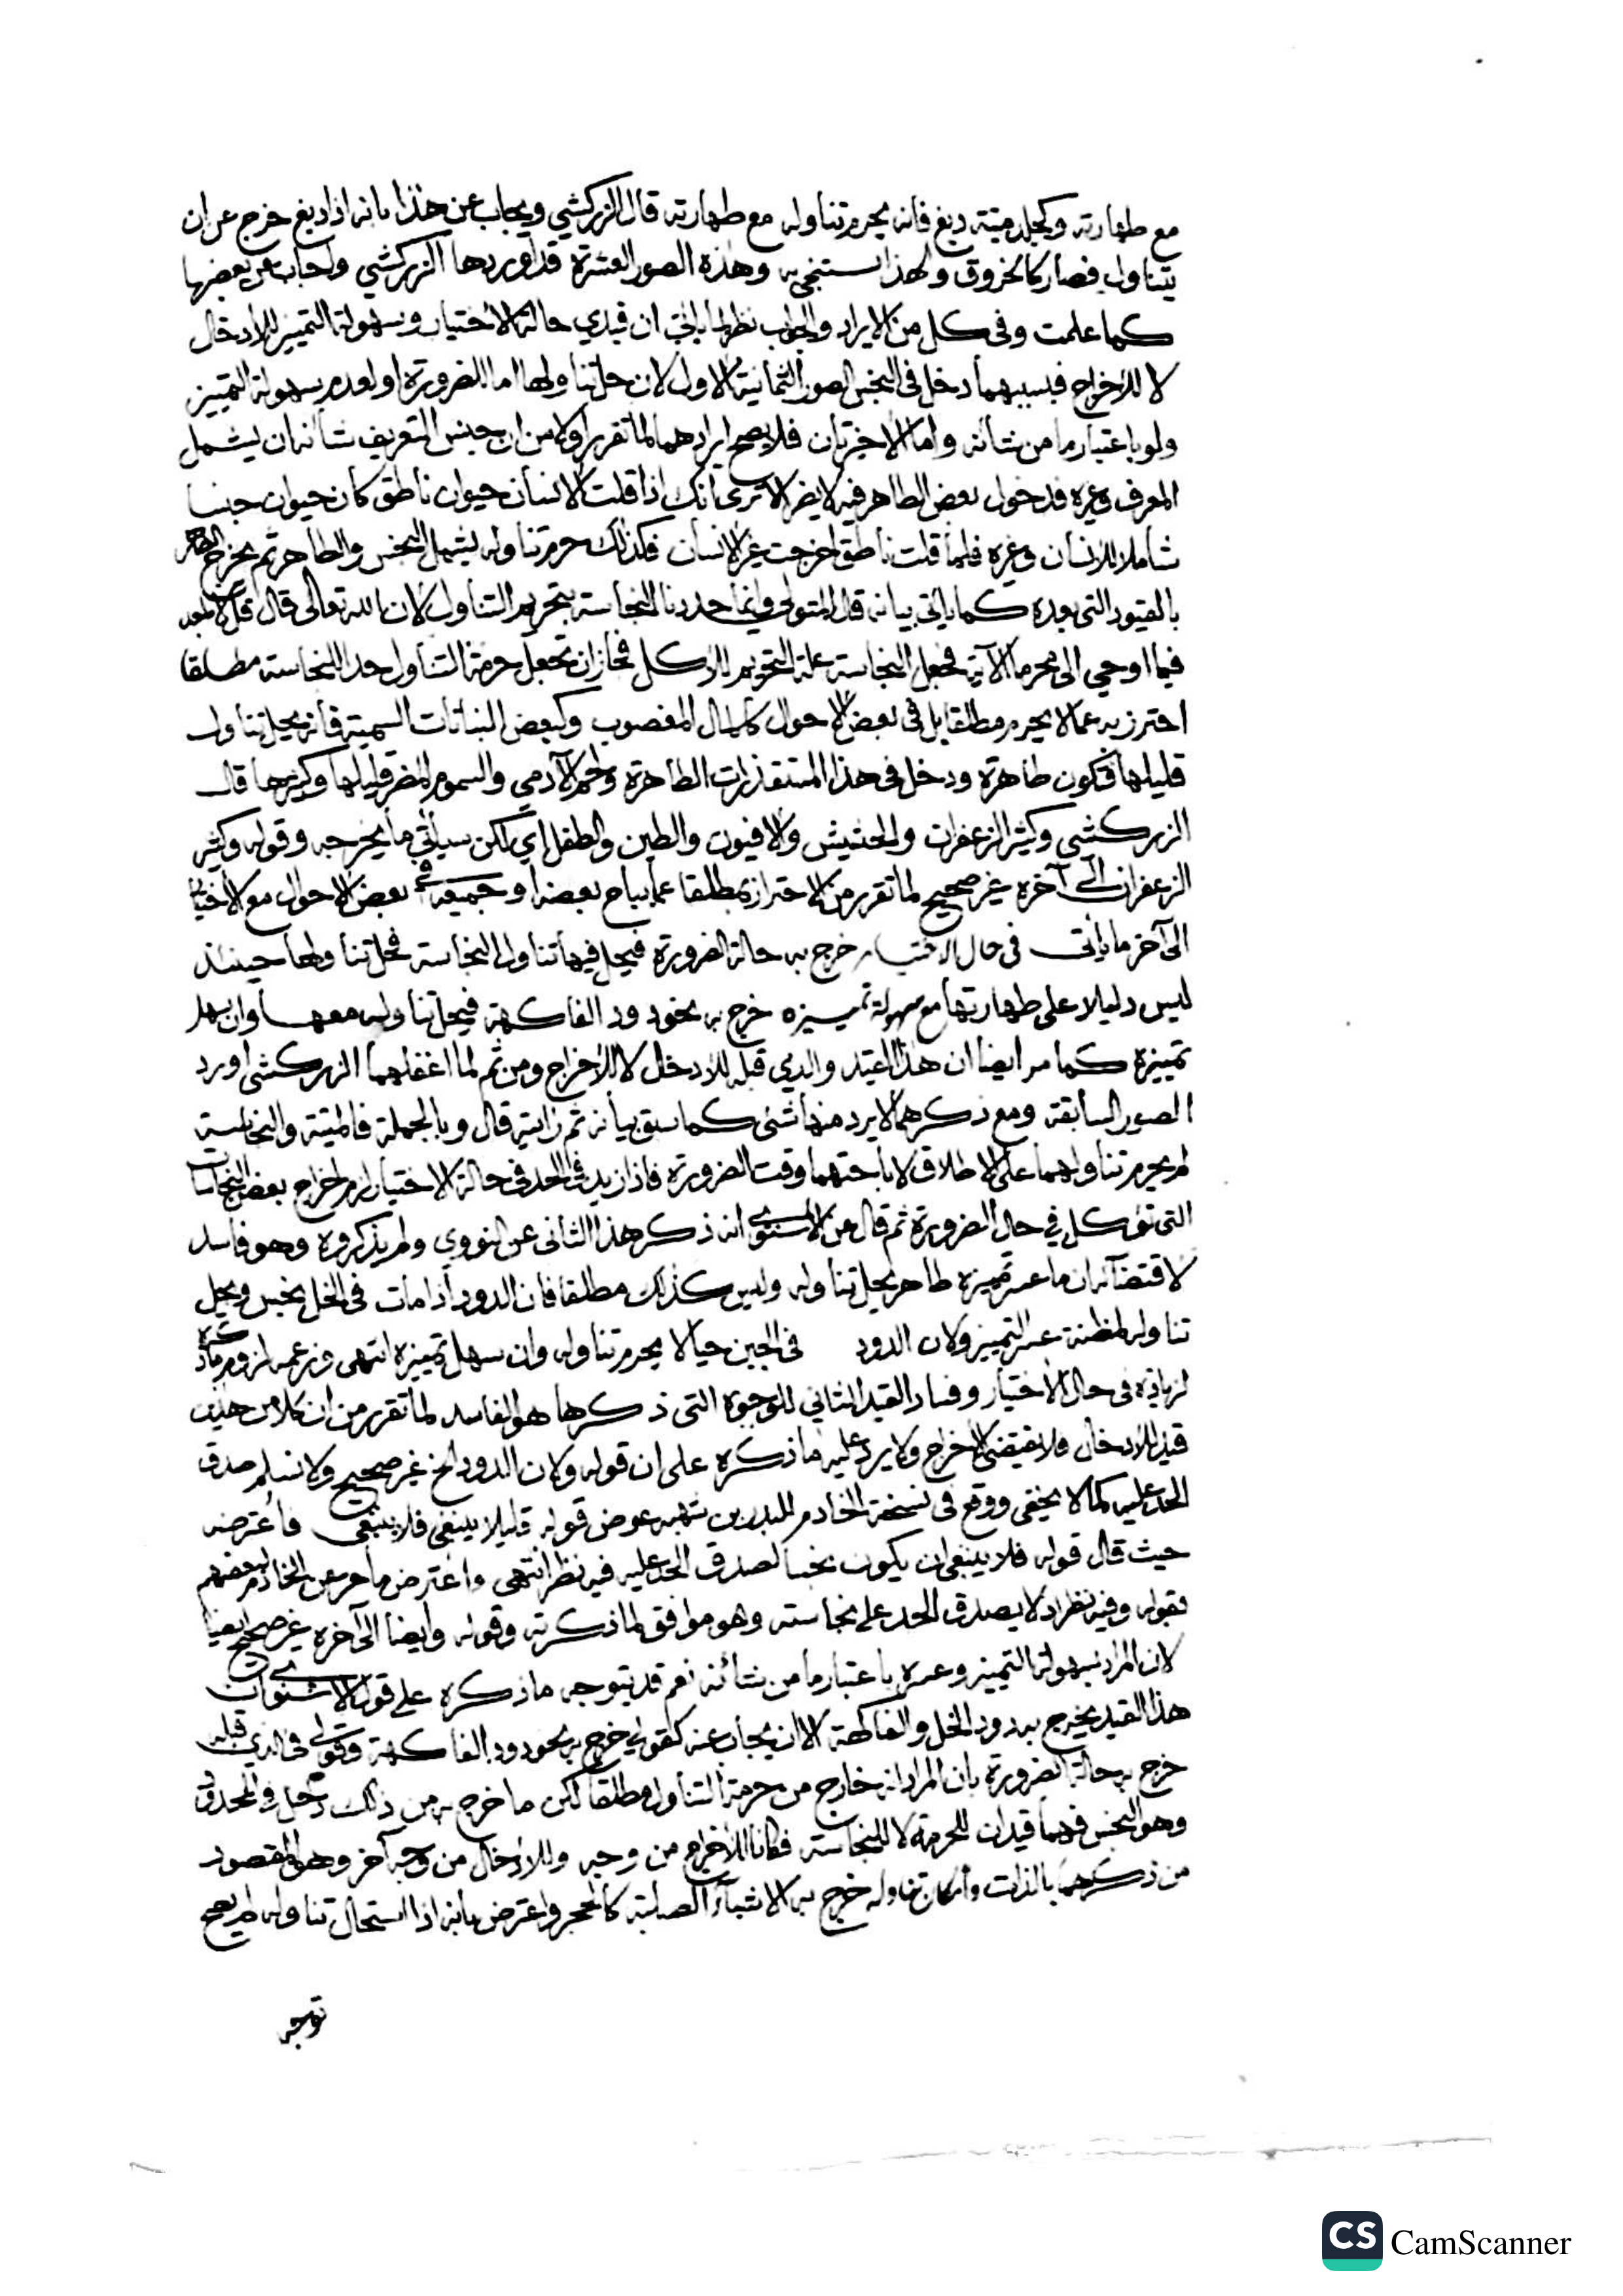 مع طهارته وكجلد ميتة دبغ فانه يحرم تناوله مع طهارته قال الزركشي ويجاب عن هذا بانه اذا دبغ خرج عن ان
يتناول فصار كالخروق ولهذا يستنجى به وهذه الصور العشرة قد اوردها الزركشي واجاب عن بعضها
كما علمت وفي كل من الايراد والجواب نظر لما ياتي ان قيدي حالة الاختيار وسهولة التمييز للادخال
لا للاخراج فبسببهما دخل في النجس الصور الثمانية الاول لان حل تناولها اما للضرورة او لعدم سهولة التمييز
ولو باعتبار ما من شأنه واما الاخيرتان فلا يصح ايرادهما لما تقرر اولا من ان جنس التعريف شأنه ان يشمل
المعرف وغيره فدخول بعض الطاهر فيه لا يضر الا ترى انك اذا قلت الانسان حيوان ناطق كان حيوان جنسا
شاملا للانسان وغيره فلما قلت ناطق اخرجت غير الانسان فكذلك حرم تناوله يشمل النجس والطاهر ثم يخرج الطاهر
بالقيود التي بعده كما ياتي بيانه قال المتولي وانما حددنا النجاسة بتحريم التناول لان الله تعالى قال قل لا اجد
فيما اوحي الى محرما الآية فجعل النجاسة علة التحريم للاكل فجاز ان تجعل حرمة التناول حد النجاسة مطلقا
احترز به عما لا يحرم مطلقا بل في بعض الاحوال كالمال المغصوب وكبعض النباتات السمية فانه يحل تناول
قليلها فتكون طاهرة ودخل في هذا المستقذرات الطاهرة ولحم الآدمي والسموم المضر قليلها وكثيرها قال
الزركشي وكثير الزعفران والحشيش والافيون والطين والطفل اي لكن سيأتي ما يخرجه وقوله وكثير
الزعفران الى آخره غير صحيح لما تقرر من الاحتراز بمطلقا عما يباح بعضه او جميعه في بعض الاحوال مع الاختيار
الى آخر ما ياتي في حال الاختيار خرج به حالة الضرورة فيحل فيها تناول النجاسة فحل تناولها حينئذ
ليس دليلا على طهارتها مع سهولة تمييزه خرج به نحو دود الفاكهة فيحل تناوله معها وان سهل
تمييزه كما مر ايضا ان هذا القيد والذي قبله للادخال لا للاخراج ومن ثم لما اغفلهما الزركشي اورد
الصور السابقة ومع ذكرهما لا يرد منها شئ كما سبق بيانه ثم رايته قال وبالجملة فالميتة والنجاسة
لم يحرم تناولهما على الاطلاق لاباحتهما وقت الضرورة فاذا زيد في الحد في حالة الاختيار لزم اخراج بعض النجاسات
التي تؤكل في حال الضرورة ثم قال عن الاسنوي انه ذكر هذا الثاني عن النووي ولم يذكروه وهو فاسد
لاقتضائه ان ما عسر تمييزه طاهر يحل تناوله وليس كذلك مطلقا فان الدود اذا مات في الخل نجس ويحل
تناوله لمظنة عسر التمييز ولان الدود في الجبن حيا لا يحرم تناوله وان سهل تمييزه انتهى وزعمه لزوم ما ذكره
لزيادة في حال الاختيار وفساد القيد الثاني للوجوه التي ذكرها هو الفاسد لما تقرر من ان كلا من هذين
قيد للادخال فلا يقتضي الاخراج ولا يرد عليه ما ذكره على ان قوله ولان الدود الخ غير صحيح ولا نسلم صدق
الحد عليه كما لا يخفى ووقع في نسخة الخادم للبدر بن شهبه عوض قوله قليلا ينبغي فلا ينبغي فاعترضه
حيث قال قوله فلا ينبغي ان يكون نجسا لصدق الحد عليه فيه نظر انتهى واعترض ما مر عن الخادم بعضهم
بقوله وفيه نظر اذ لا يصدق الحد على نجاسته وهو موافق لما ذكرته وقوله وايضا الى آخره غير صحيح ايضا
لان المراد بسهولة التمييز وعسره باعتبار ما من شأنه نعم قد يتوجه ما ذكره على قول الاسنوي ان
هذا القيد يخرج به دود الخل والفاكهة الا ان يجاب عنه كقولي خرج به نحو دود الفاكهة وقولي في الذي قبله
خرج به حالة الضرورة بان المراد انه خارج من حرمة التناول مطلقا لكن ما خرج به من ذلك دخل في المحدود
وهو النجس فهما قيدان للحرمة لا للنجاسة فكانا للاخراج من وجه وللادخال من وجه آخر وهو المقصود
من ذكرهما بالذات وامكان تناوله خرج به الاشياء الصلبة كالحجر واعترض بانه اذا استحال تناوله لم يصح
توجه
CS CamScanner